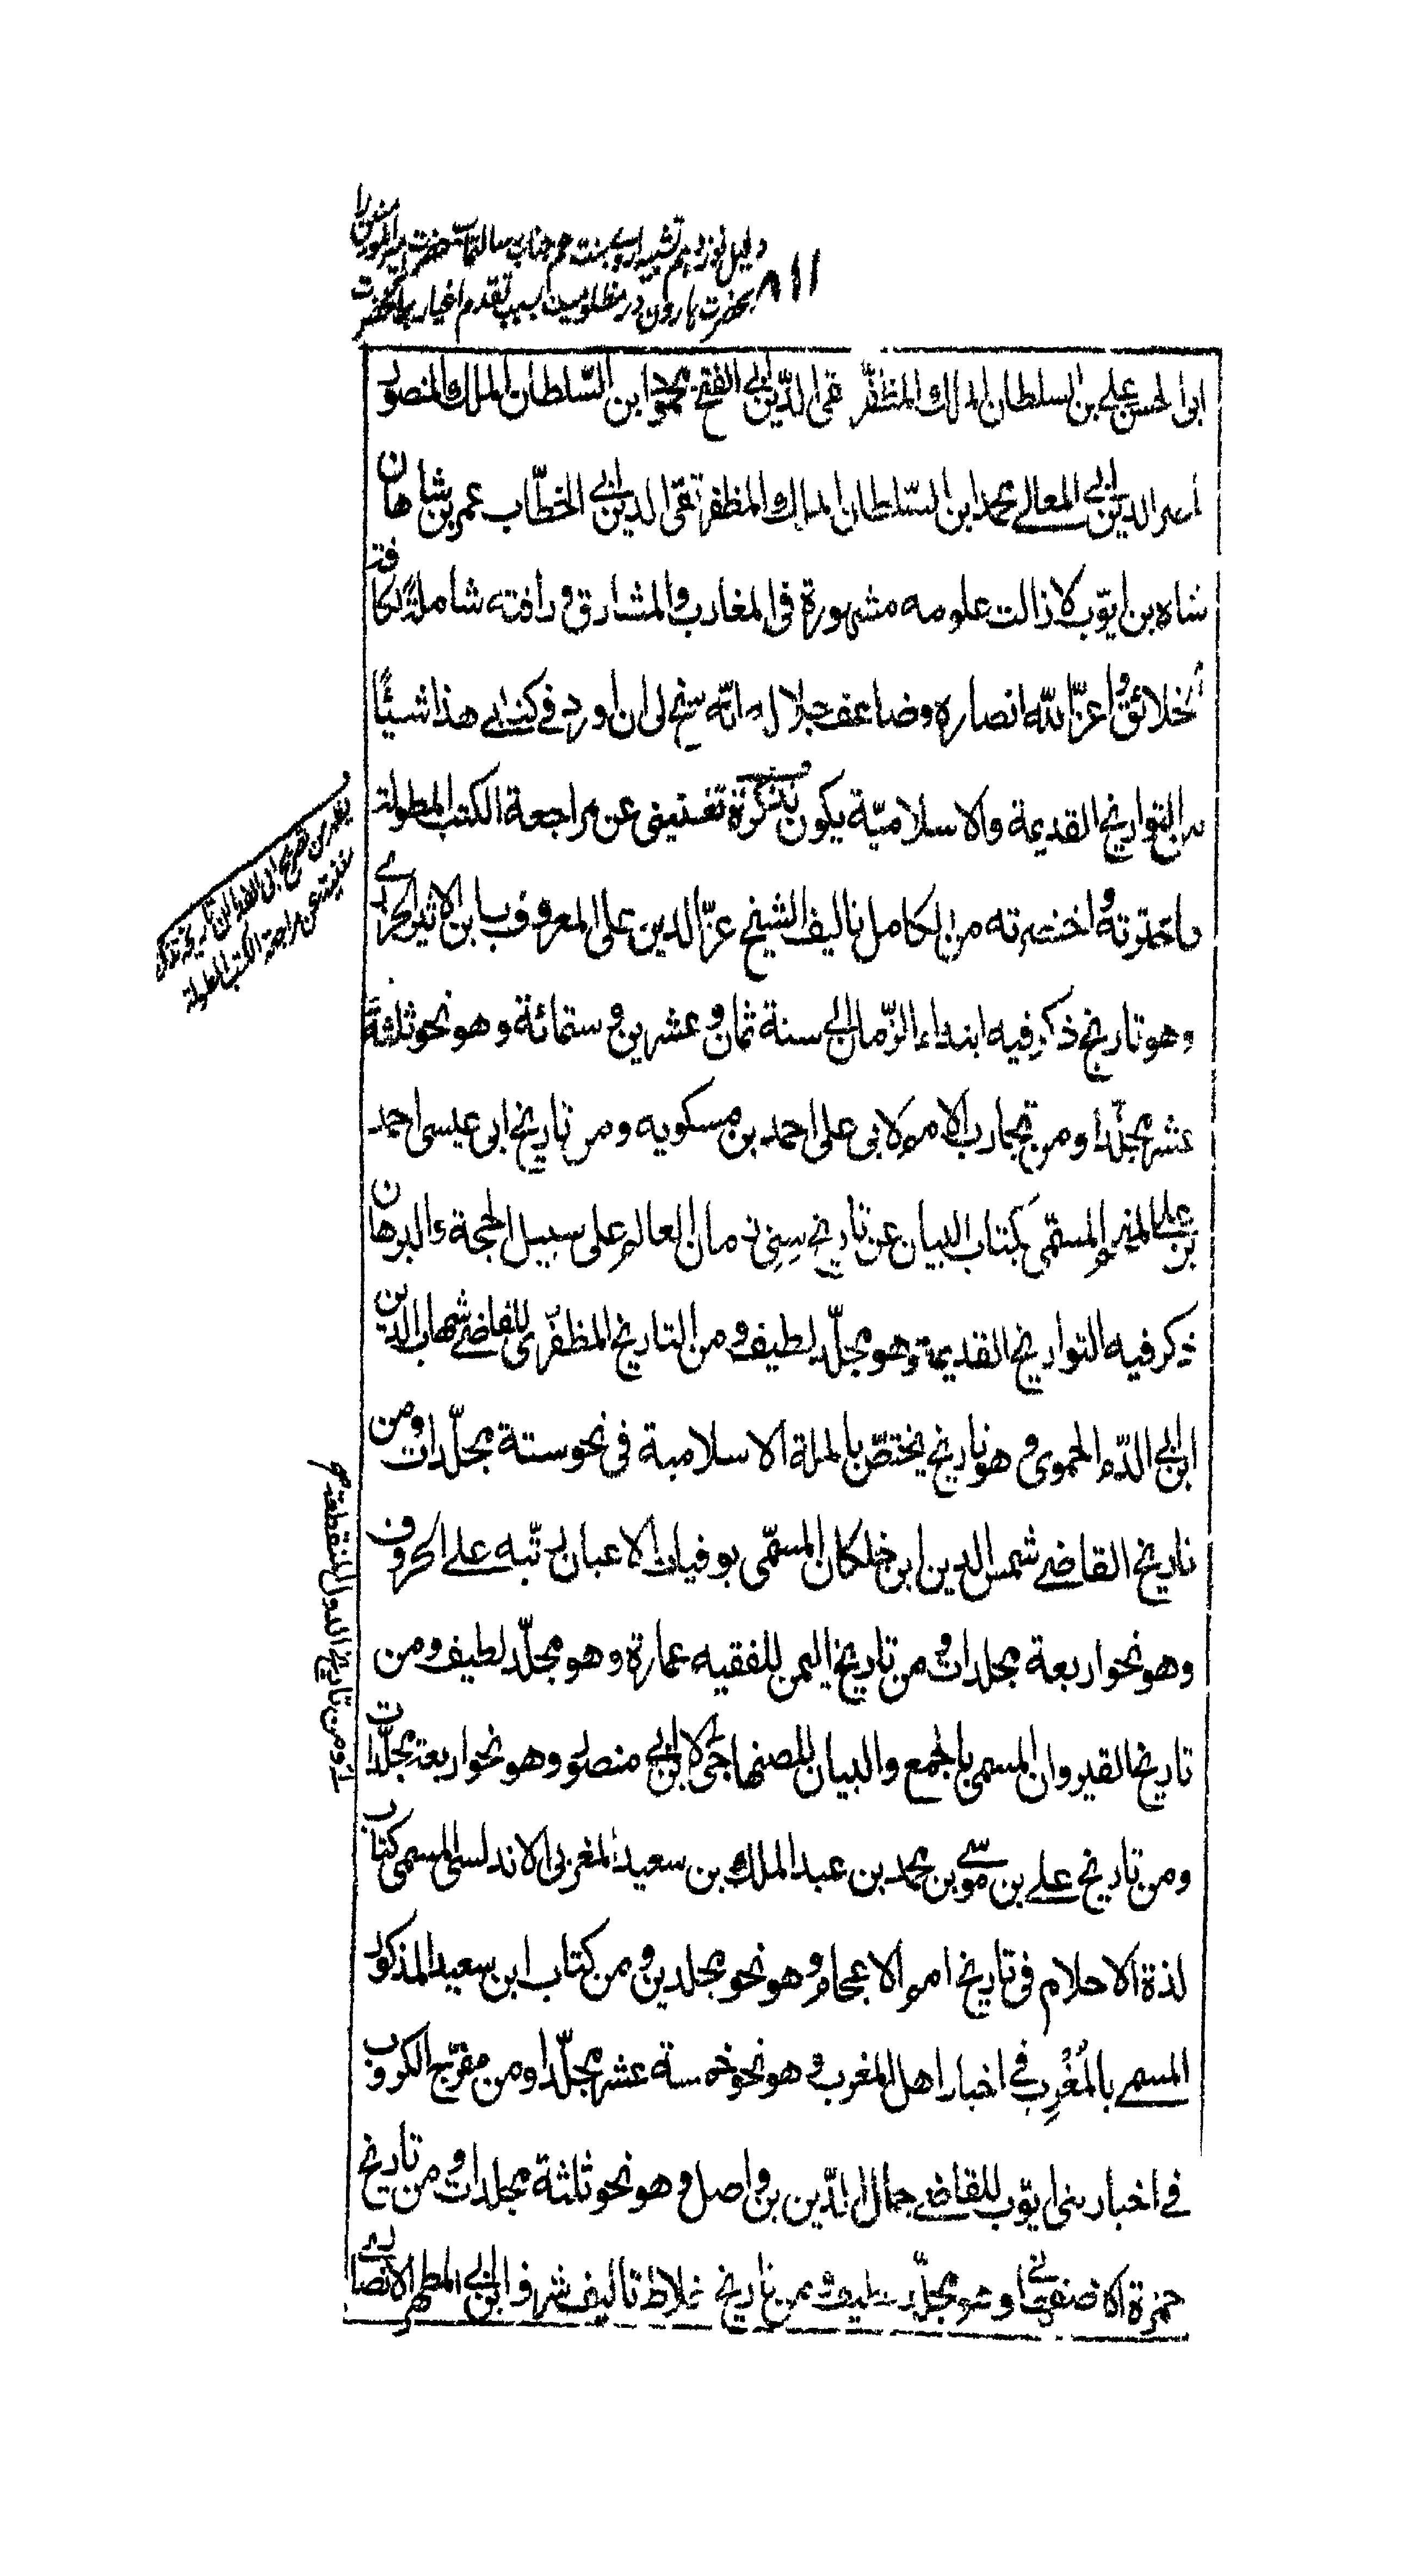 ٨١١
دلیل نوزدهم تشبیه
بحضرت هارون در مظلومیت بسبب تقدم اغیار
ابی الحسن علی بن السلطان الملك المظفّر تقی الدّین ابی الفتح محمود ابن السّلطان الملك المنصور
ناصر الدین ابی المعالی محمد ابن السّلطان الملك المظفر تقی الدین ابی الخطّاب عمر بن شاهان
شاه بن ایّوب لا زالت علومه مشهورة فی المغارب و المشارق و رافته شاملة لكافة
الخلائق و اعزّ الله انصاره و ضاعف جلاله انّه سنح لی ان اورد فی كتابی هذا شیئًا
من التواریخ القدیمة والاسلامیّة یكون تذكرة تغنینی عن مراجعة الكتب المطولة
فاخترته و اختصرته من الكامل تالیف الشیخ عزّ الدین علی المعروف بابن الاثیر الجزری
وهو تاریخ ذكر فیه ابتداء الزّمان الی سنة ثمان و عشرین و ستمائة و هو نحو ثلثة
عشر مجلّدا و من تجارب الامم لابی علی احمد بن مسكویه و من تاریخ ابی عیسی احمد
بن علی المنجم المسمّی بكتاب البیان عن تاریخ سِنِی زمان العالم علی سبیل الحجة و البرهان
ذكر فیه التواریخ القدیمة و هو مجلّد لطیف و من التاریخ المظفّری للقاضی شهاب الدین
ابن ابی الدّم الحموی و هو تاریخ یختصّ بالملة الاسلامیة فی نحو ستة مجلّدات و من
تاریخ القاضی شمس الدین ابن خلكان المسمّی بوفیات الاعیان رتّبه علی الحروف
وهو نحو اربعة مجلدات و من تاریخ الیمن للفقیه عمارة و هو مجلّد لطیف و من
تاریخ القیروان المسمی بالجمع والبیان للصنهاجی لابن ابی منصور و هو نحو اربعة مجلّدات
ومن تاریخ علی بن موسی بن محمد بن عبد الملك بن سعید المغربی الاندلسی المسمی كتاب
لذة الاحلام فی تاریخ امم الاعجام و هو نحو مجلدین و من كتاب ابن سعید المذكور
المسمی بالمُغْرِب فی اخبار اهل المغرب و هو نحو خمسة عشر مجلّدا و من مفرّج الكروب
فی اخبار بنی ایّوب للقاضی جمال الدّین بن واصل و هو نحو ثلثة مجلدات و من تاریخ
حمزة الاصفهانی و هو مجلّد لطیف و من تاریخ خلاط تالیف شرف ابن ابی المطهر الانصاری
عن مراجعة الكتب المطولة
و من تاریخ الدول المنقطعة